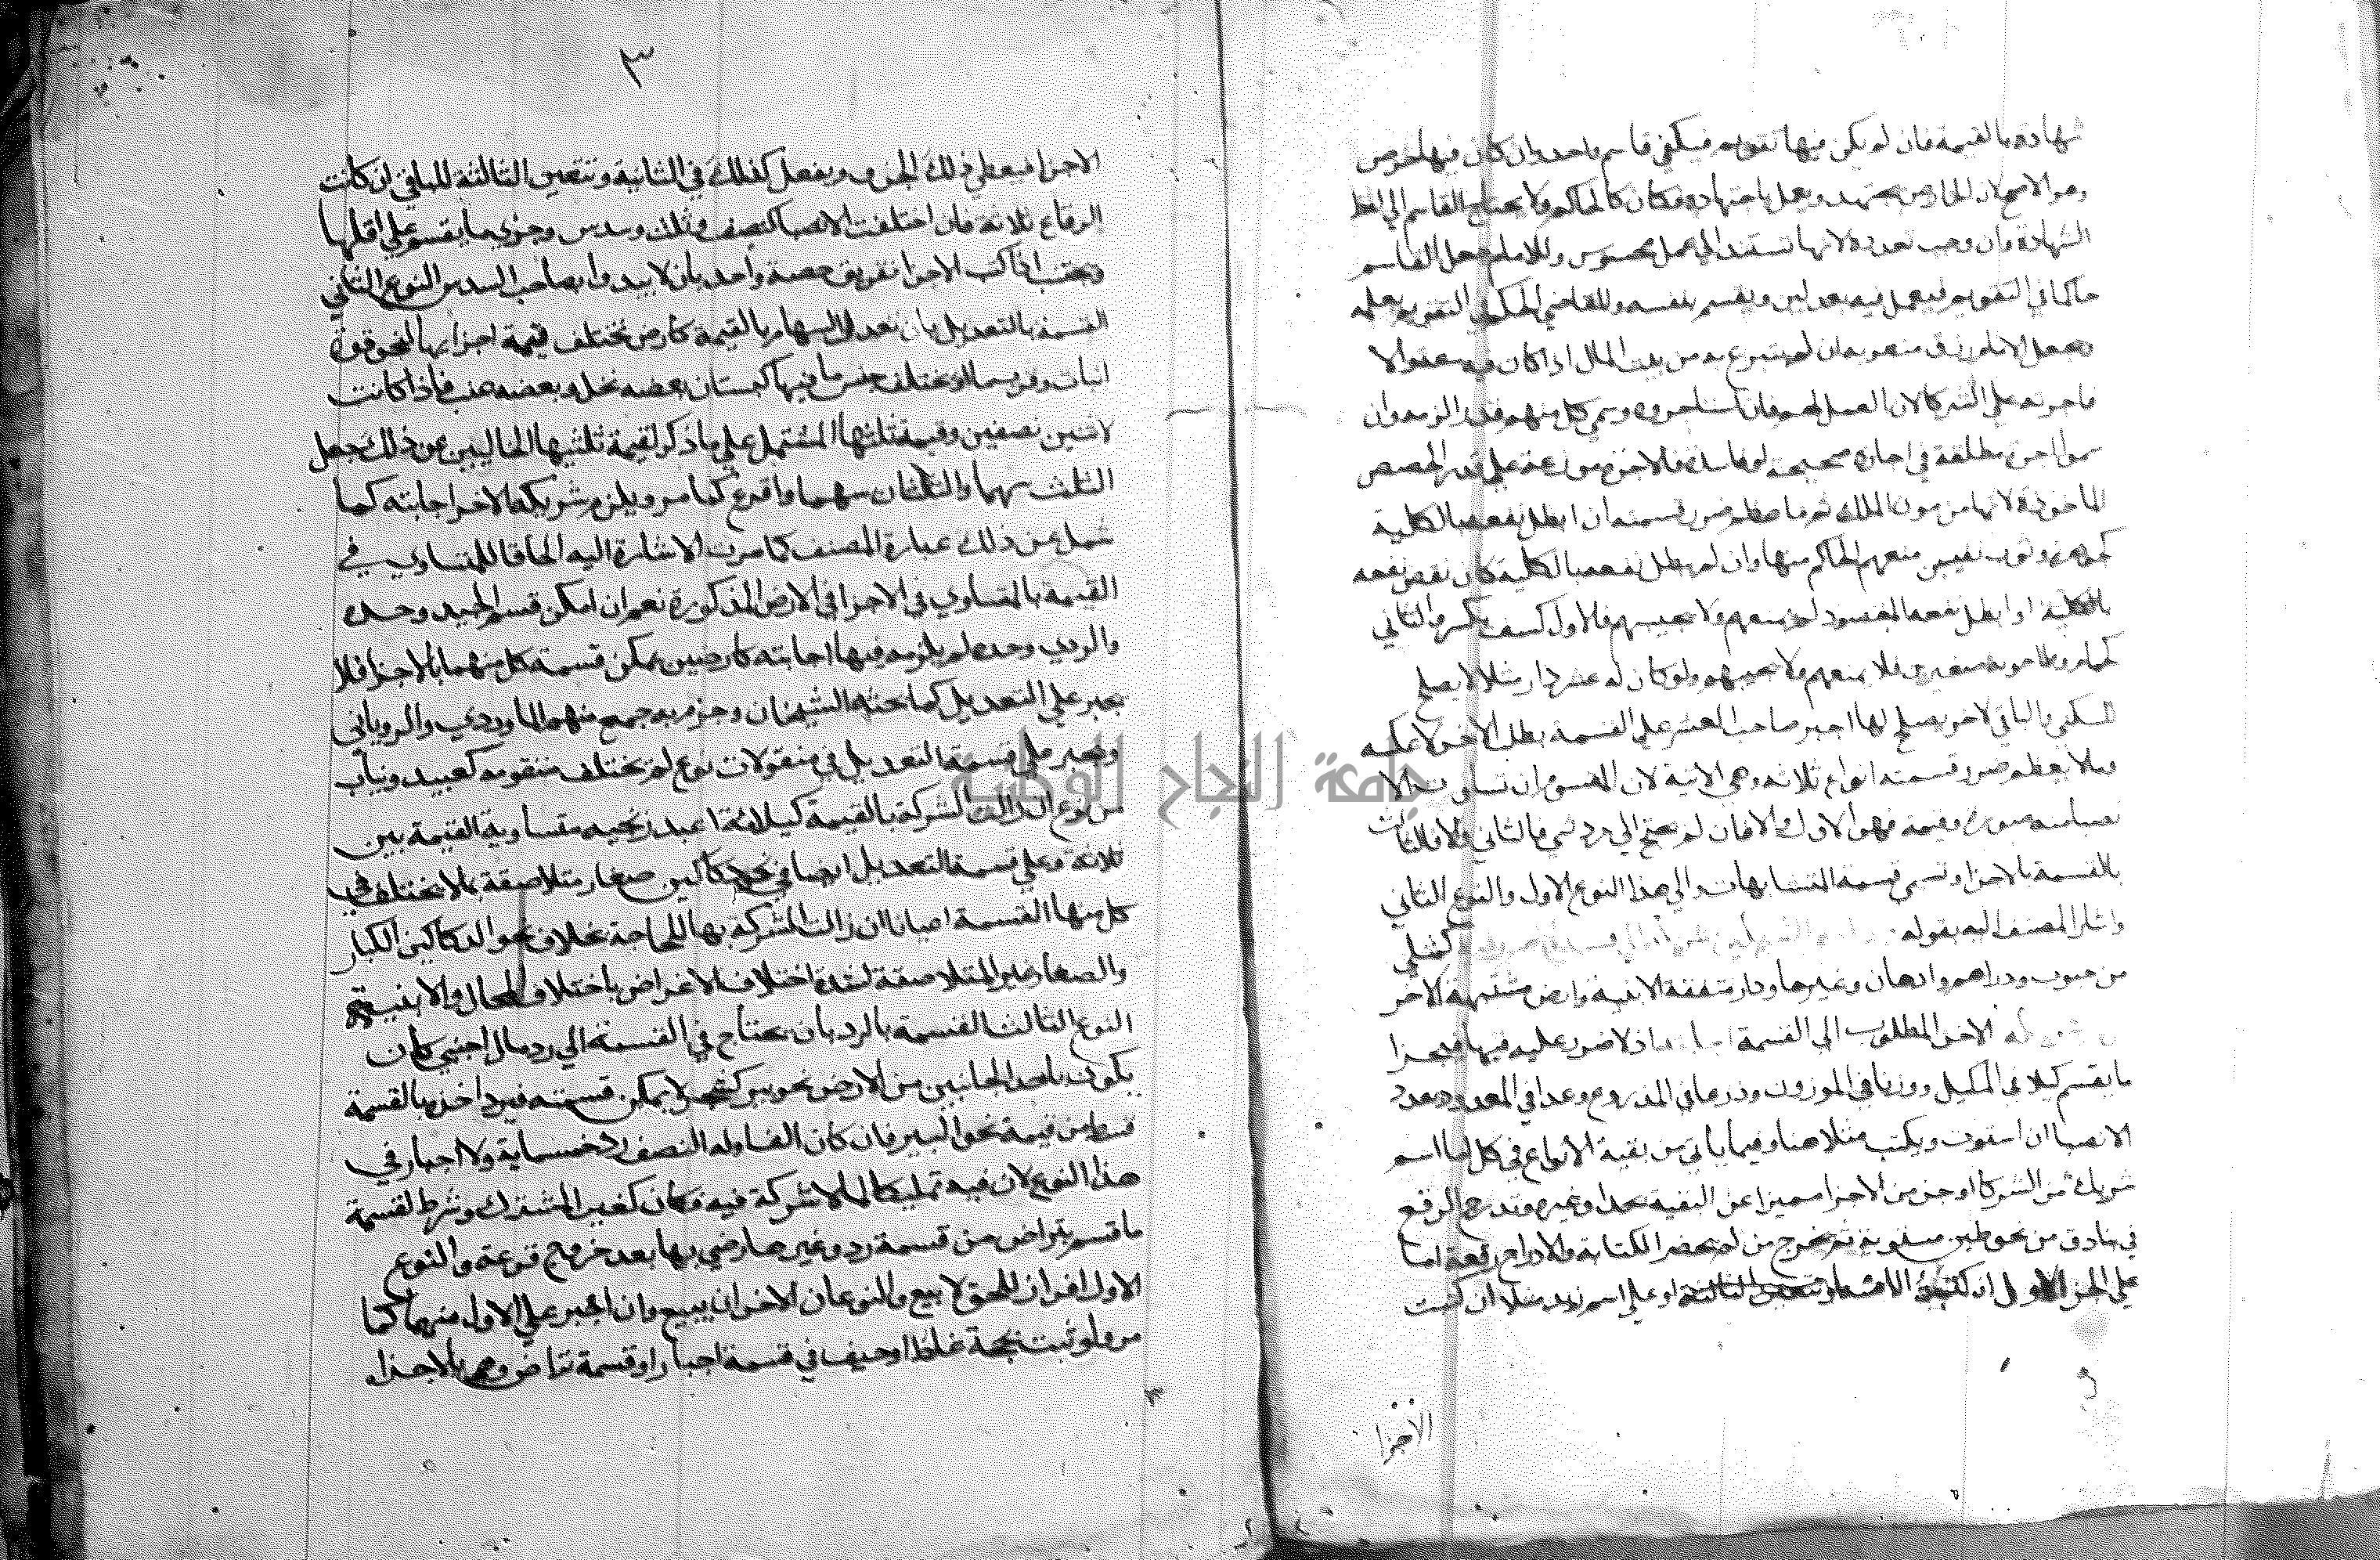 شهادة بالقيمة فان لم يكن فيها تقويم فيكفي قاسم واحد وان كان فيها خرص
وهو الاصح لان الخارص يجتهد ويعمل باجتهاده فكان كالحاكم ولا يحتاج القاسم الي لفظ
الشهادة وان وجب تعدده لانها تستند الي عمل محسوس وللامام جعل القاسم
حاكما في التقويم فيعمل فيه بعدلين ويقسم بنفسه وللقاضي الحكم في التقويم بعلمه
ويجعل الامام رزق منصوبه ان لم يتبرع به من بيت المال اذا كان فيه سعة والا
فاجرته علي الشركا لان العمل لهم فان استاجروه وسمي كل منهم قدرا لزمه وان
سموا اجرة مطلقة في اجارة صحيحة او فاسدة فالاجرة موزعة علي قدر الحصص
الماخوذة لانها من مون الملك ثم ما عظم ضرر قسمته ان ابطل نفعه بالكلية
كجوهرة وثوب نفيسين منعهم الحاكم منها وان لم يبطل نفعه بالكلية كان نقص نفعه
بالكلية او ابطل نفعه المقصود لم يمنعهم ولا يجيبهم فالاول كسيف يكسر والثاني
كحمام وطاحونة صغيرين فلا يمنعهم ولا يجيبهم ولو كان له عشر دار مثلا لا يصلح
للسكني والباقي لاخر يصلح لها اجبر صاحب العشر علي القسمة بطلب الاخر لا عكسه
وما لا يعظم ضرر قسمته انواع ثلاثة وهي الاتية لان المقسوم ان تساوت الا
نصبا منه صورة وقيمة فهو الاول والا فان لم يحتج الي رد شي فالثاني والا فالثالث
بالقسمة بالاجزا وتسمي قسمة المتشابهات والي هذا النوع الاول والنوع الثاني
واشار المصنف اليه بقوله كمثلي
من حبوب ودراهم وادهان وغيرها ودار متفقة الابنية وارض مشتبهة الاجزا
الاخر المطلوب الي القسمة اذ لا ضرر عليه فيها فيجزا
ما يقسم كيلا في المكيل ووزنا في الموزون وذرعا في المذروع وعدا في المعدود بعدد
الانصبا ان استوت ويكتب مثلا هنا وفيما ياتي من بقية الانواع في كل اسم
شريك من الشركا او جزء من الاجزا مميزا عن البقية بحد او غيره وتدرج الرقع
في بنادق من نحو طين مستوية ثم يخرج من لم يحضر الكتابة والادراج رقعة اما
علي الجزء الاول ان كتبت الاسما او علي اسم زيد مثلا ان كتبت
الاجزا
٣
الاجزا فيعطي ذلك الجزء ويفعل كذلك في الثانية وتتعين الثالثة للباقي ان كانت
الرقاع ثلاثة فان اختلفت الانصبا كنصف وثلث وسدس وجزي ما يقسم علي اقلها
ويجتنب اذا كتب الاجزا تفريق حصة واحد بان لا يبدوا بصاحب السدس النوع الثاني
القسمة بالتعديل بان تعدل السهام بالقيمة كارض تختلف قيمة اجزايها لنحو قوة
انبات وقرب ما او يختلف جنس ما فيها كبستان بعضه نخل وبعضه عنب فاذا كانت
لاثنين نصفين وقيمة ثلثها المشتمل علي ما ذكر لقيمة ثلثيها الخاليين عن ذلك جعل
الثلث سهما والثلثان سهما واقرع كما مر ويلزم شريكه الاخر اجابته كما
شمل عن ذلك عبارة المصنف كما مرت الاشارة اليه الحاقا للمتساوي في
القيمة بالمتساوي في الاجزا في الارض المذكورة نعم ان امكن قسم الجيد وحده
والردي وحده لم يلزمه فيها اجابته كارضين يمكن قسمة كل منهما بالاجزا فلا
يجبر علي التعديل كما بحثه الشيخان وجزم به جمع منهم الماوردي والروياني
ويجبر علي قسمة التعديل في منقولات نوع لم يختلف متقومه كعبيد وثياب
من نوع ان زالت الشركة بالقيمة كثلاثة اعبد زنجيه متساوية القيمة بين
ثلاثة وعلي قسمة التعديل ايضا في نحو دكاكين صغار متلاصقة مما لا يختلف في
كل منها القسمة اعيانا ان زالت الشركة بها للحاجة بخلاف نحو الدكاكين الكبار
والصغار غير المتلاصقة لشدة اختلاف الاغراض باختلاف المحال والابنية
النوع الثالث القسمة بالرد بان يحتاج في القسمة الي رد مال اجنبي كان
يكون باحد الجانبين من الارض نحو بير كشجر لا يمكن قسمته فيرد اخذه بالقسمة
قسط من قيمة نحو البير فان كان الفا وله النصف رد خمسماية ولا اجبار في
هذا النوع لان فيه تمليكا لما لا شركة فيه فكان كغير المشترك وشرط لقسمة
ما قسم بتراض من قسمة رد وغيرها رضي بها بعد خروج قرعة والنوع
الاول افراز للحق لا بيع والنوعان الاخران بيع وان اجبر علي الاول منهما كما
مر ولو ثبت بحجة غلط او حيف في قسمة اجبار او قسمة تراض وهي بالاجزا
٣
جامعة النجاح الوطنية